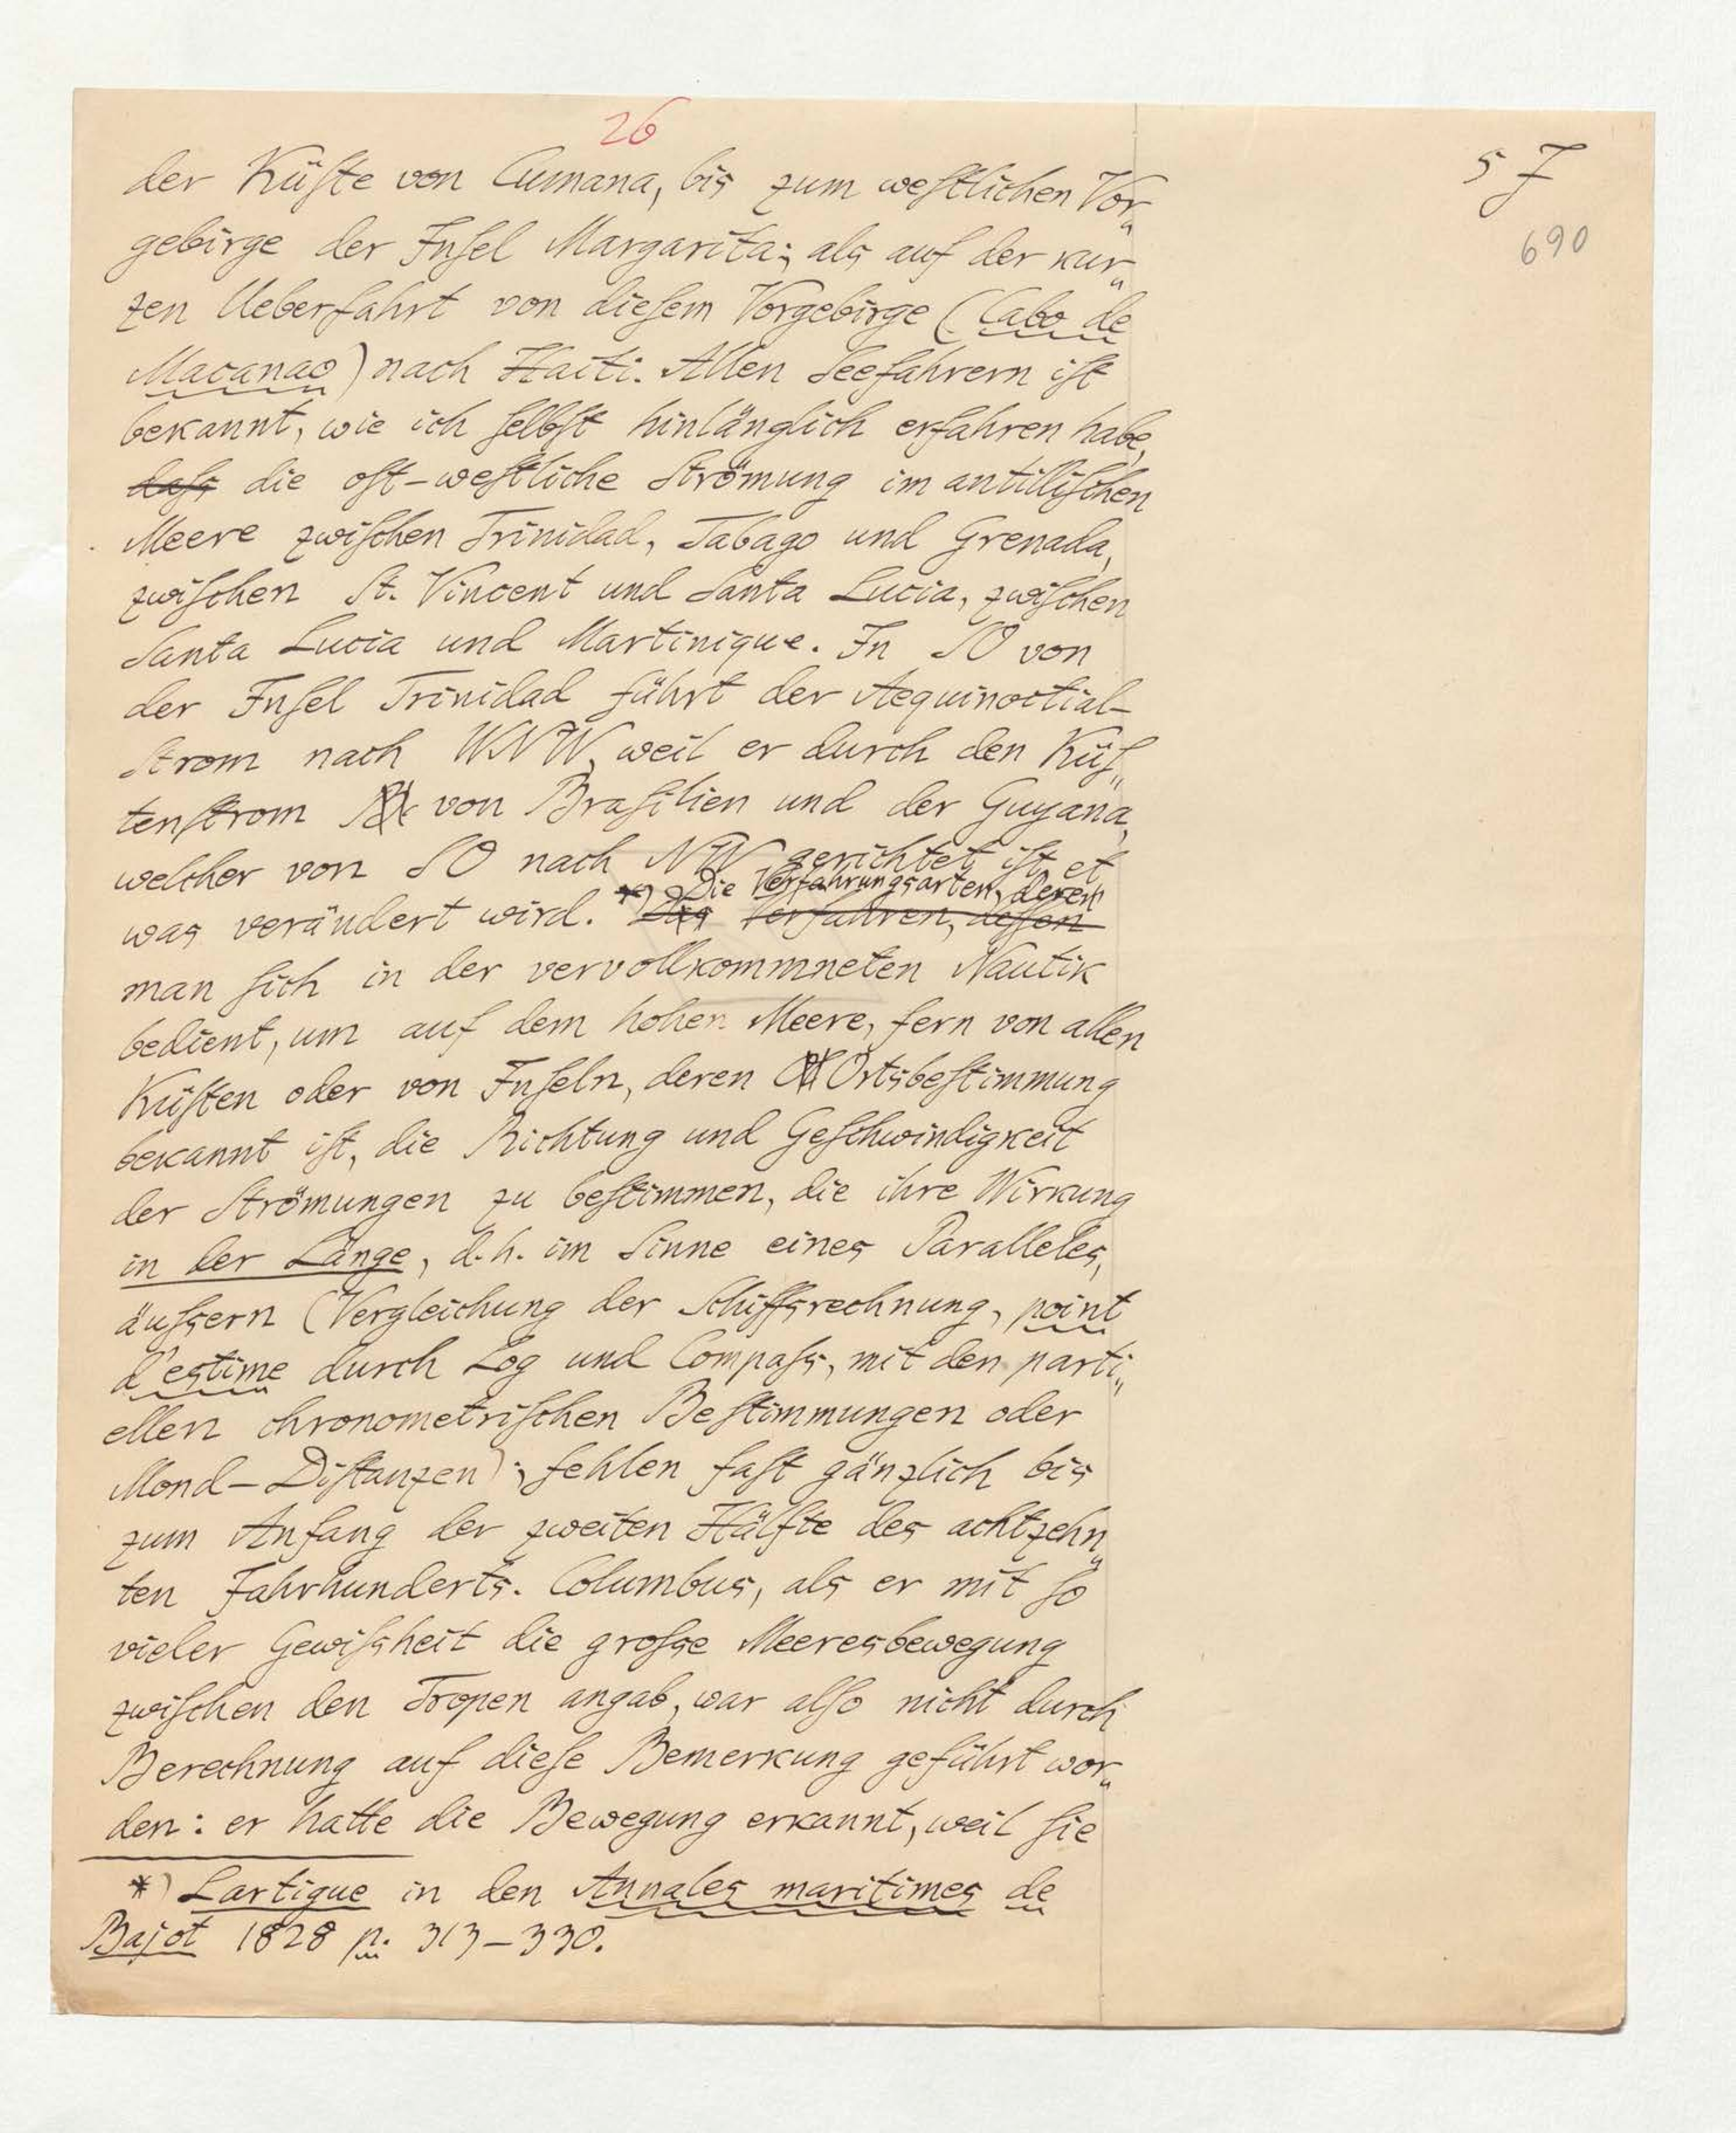 26
5 J
690
der Küſte von Cumana, bis zum weſtlichen Vor„
gebirge der Inſel Margarita; als auf der kur„
zen Ueberfahrt von dieſem Vorgebirge (Cabo de
Macanao) nach Haiti. Allen Seefahrern iſt
bekannt, wie ich ſelbſt hinlänglich erfahren habe,
daſs die oſt-weſtliche Strömung im antilliſchen
Meere zwiſchen Trinidad, Tabago und Grenada,
zwiſchen St. Vincent und Santa Lucia, zwiſchen
Santa Lucia und Martinique. In SO von
der Inſel Trinidad führt der Aequinoctial-
Strom nach WNW, weil er durch den Küſ„
tenſtrom von Braſilien und der Guyana,
welcher von SO nach NW gerichtet iſt, et
Die Verfahrungsarten, deren
was verändert wird. *) Das Verfahren, deſſen
man ſich in der vervollkommneten Nautik
bedient, um auf dem hohen Meere, fern von allen
Küſten oder von Inſeln, deren Ortsbeſtimmung
bekannt iſt, die Richtung und Geſchwindigkeit
der Strömungen zu beſtimmen, die ihre Wirkung
in der Länge, d.h. im Sinne eines Paralleles,
äuſsern (Vergleichung der Schiffsrechnung, point
d'estime durch Log und Compaſs, mit den parti„
ellen chronometriſchen Beſtimmungen oder
Mond-Diſtanzen); fehlen faſt gänzlich bis
zum Anfang der zweiten Hälfte des achtzehn„
ten Jahrhunderts. Columbus, als er mit ſo
vieler Gewiſsheit die groſse Meeresbewegung
zwiſchen den Tropen angab, war alſo nicht durch
Berechnung auf dieſe Bemerkung geführt wor„
den: er hatte die Bewegung erkannt, weil ſie
*) Lartigue in den Annales maritimes de
Bajot 1828 p. 313-330.